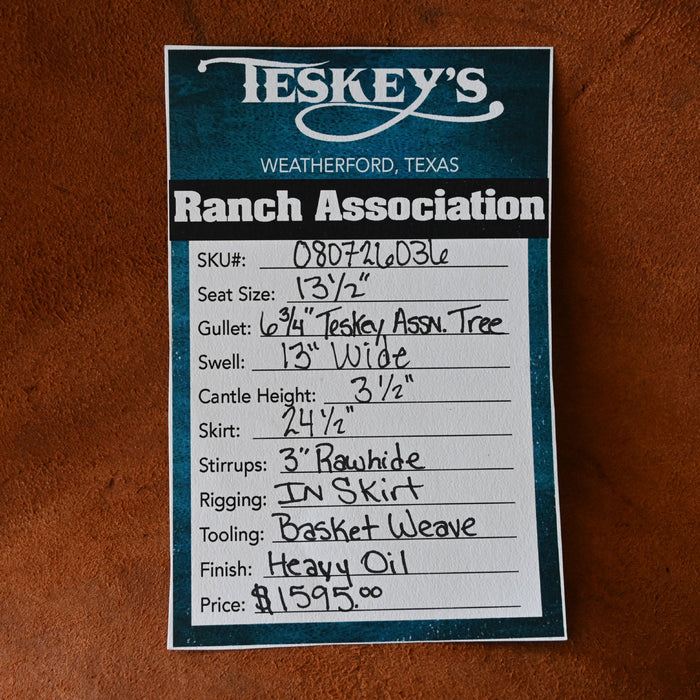 TESKEY'S
WEATHERFORD, TEXAS
Ranch Association
SKU#: 080726036
Seat Size: 13 1/2"
Gullet: 6 3/4" Teskey Assn. Tree
Swell: 13" Wide
Cantle Height: 3 1/2"
Skirt: 24 1/2"
Stirrups: 3" Rawhide
Rigging: In Skirt
Tooling: Basket Weave
Finish: Heavy Oil
Price: $1595.00